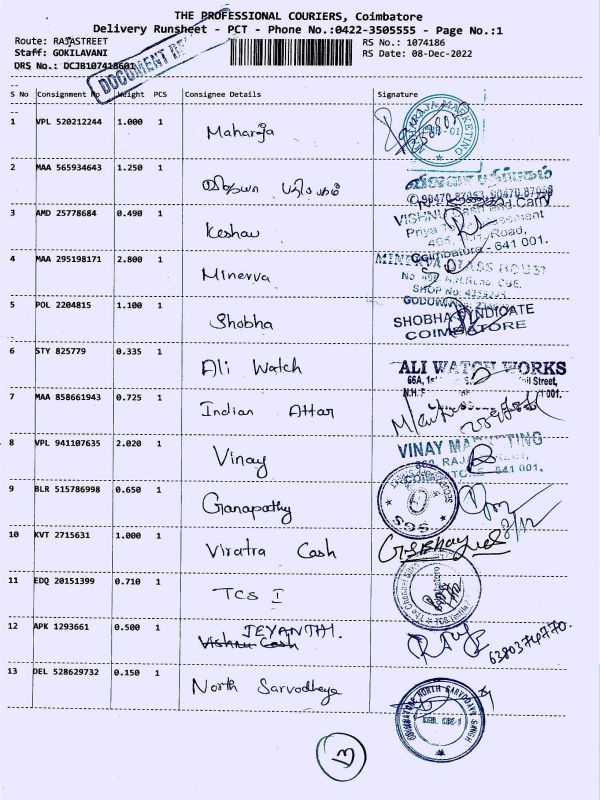 THE PROFESSIONAL COURIERS, Coimbatore
Delivery Runsheet - PCT - Phone No.:0422-3505555 - Page No.:1
Route: RAJASTREET
RS No.: 1074186
Staff: GOKILAVANI
RS Date: 08-Dec-2022
DRS No.: DCJB107418601
DOCUMENT
S No Consignment No Weight PCS Consignee Details Signature
1 VPL 520212244 1.000 1 Maharaja
2 MAA 565934643 1.250 1
விஜயா பதிப்பகம்
3 AMD 25778684 0.490 1 Keshav
VISHNU Cash and Carry
Road,
Coimbatore - 641 001.
4 MAA 295198171 2.800 1 Minerva
MINERVA GLASS HOUSE
5 POL 2204815 1.100 1 Shobha
SHOBHA SYNDICATE
COIMBATORE
6 STY 825779 0.335 1 Ali Watch
ALI WATCH WORKS
66A, Street,
7 MAA 858661943 0.725 1 Indian Attar
8 VPL 941107635 2.020 1 Vinay
VINAY MARKETING
641 001.
9 BLR 515786998 0.650 1 Ganapathy
SGS
8/12
10 KVT 2715631 1.000 1 Viratra Cash
11 EDQ 20151399 0.710 1 TCS I
12 APK 1293661 0.500 1 JEYANTHI.
Vishnu Cash
6380374770.
13 DEL 528629732 0.150 1 North Sarvodhaya
NORTH SARVODAYA SANGH
13